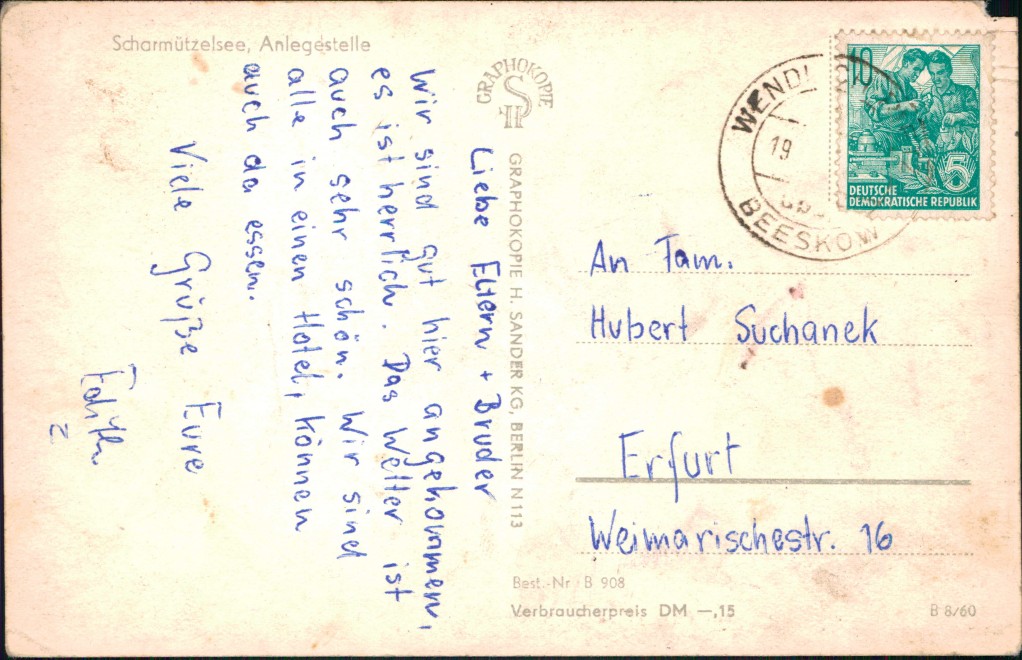 Scharmützelsee, Anlegestelle
Liebe Eltern + Bruder
Wir sind gut hier angekommen,
es ist herrlich. Das Wetter ist
auch sehr schön. Wir sind
alle in einen Hotel, können
auch da essen.
Viele Grüße Eure
Edith
GRAPHOKOPIE
SH
GRAPHOKOPIE H. SANDER KG, BERLIN N 113
WENDI
19
BEESKOW
10
5
DEUTSCHE
DEMOKRATISCHE REPUBLIK
An Fam.
Hubert Suchanek
Erfurt
Weimarischestr. 16
Best.-Nr. B 908
Verbraucherpreis DM —,15
B 8/60